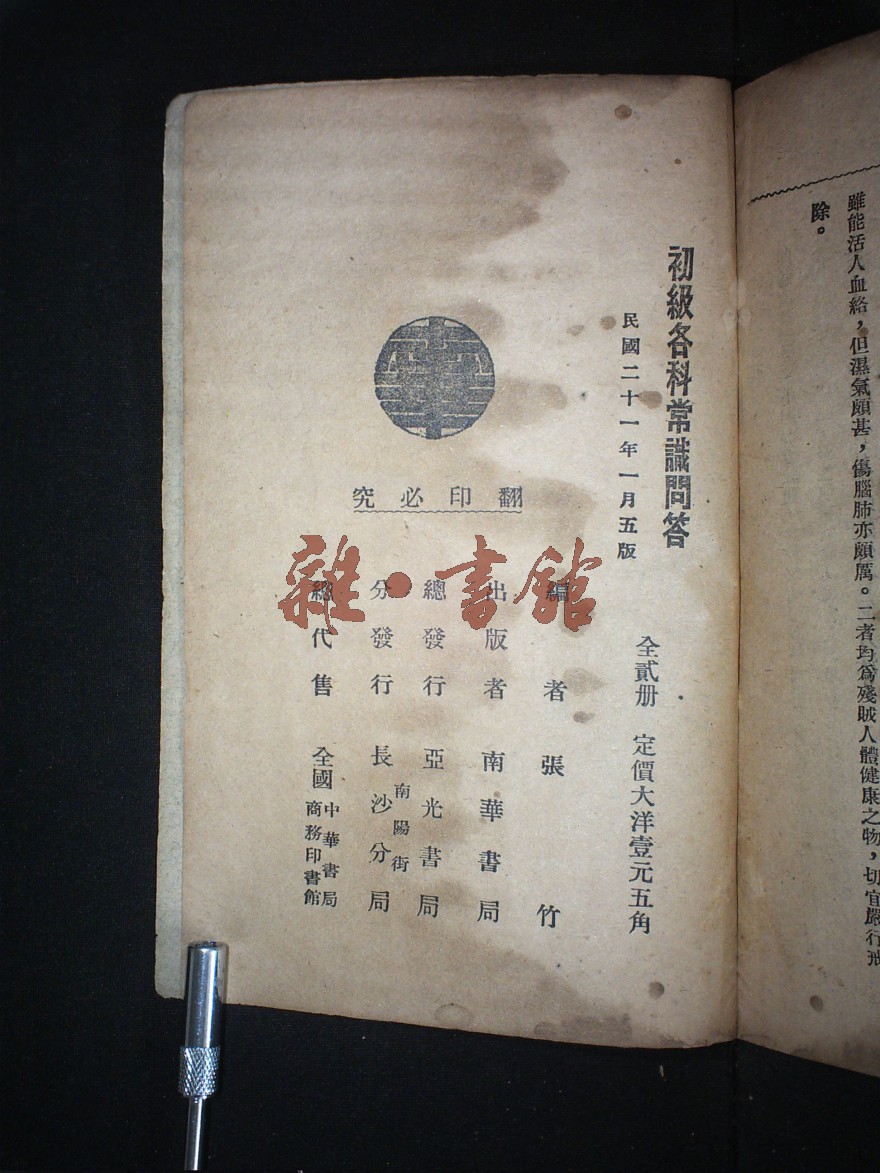 雖能活人血絡，但濕氣頗甚，傷腦肺亦頗厲。二者均爲殘賊人體健康之物，切宜嚴行戒
除。
初級各科常識問答
民國二十一年一月五版
全貳册　定價大洋壹元五角
編者　張竹
出版者　南華書局
總發行　亞光書局
南陽街
分發行　長沙分局
總代售　全國
中華書局
商務印書館
翻印必究
雜·書館